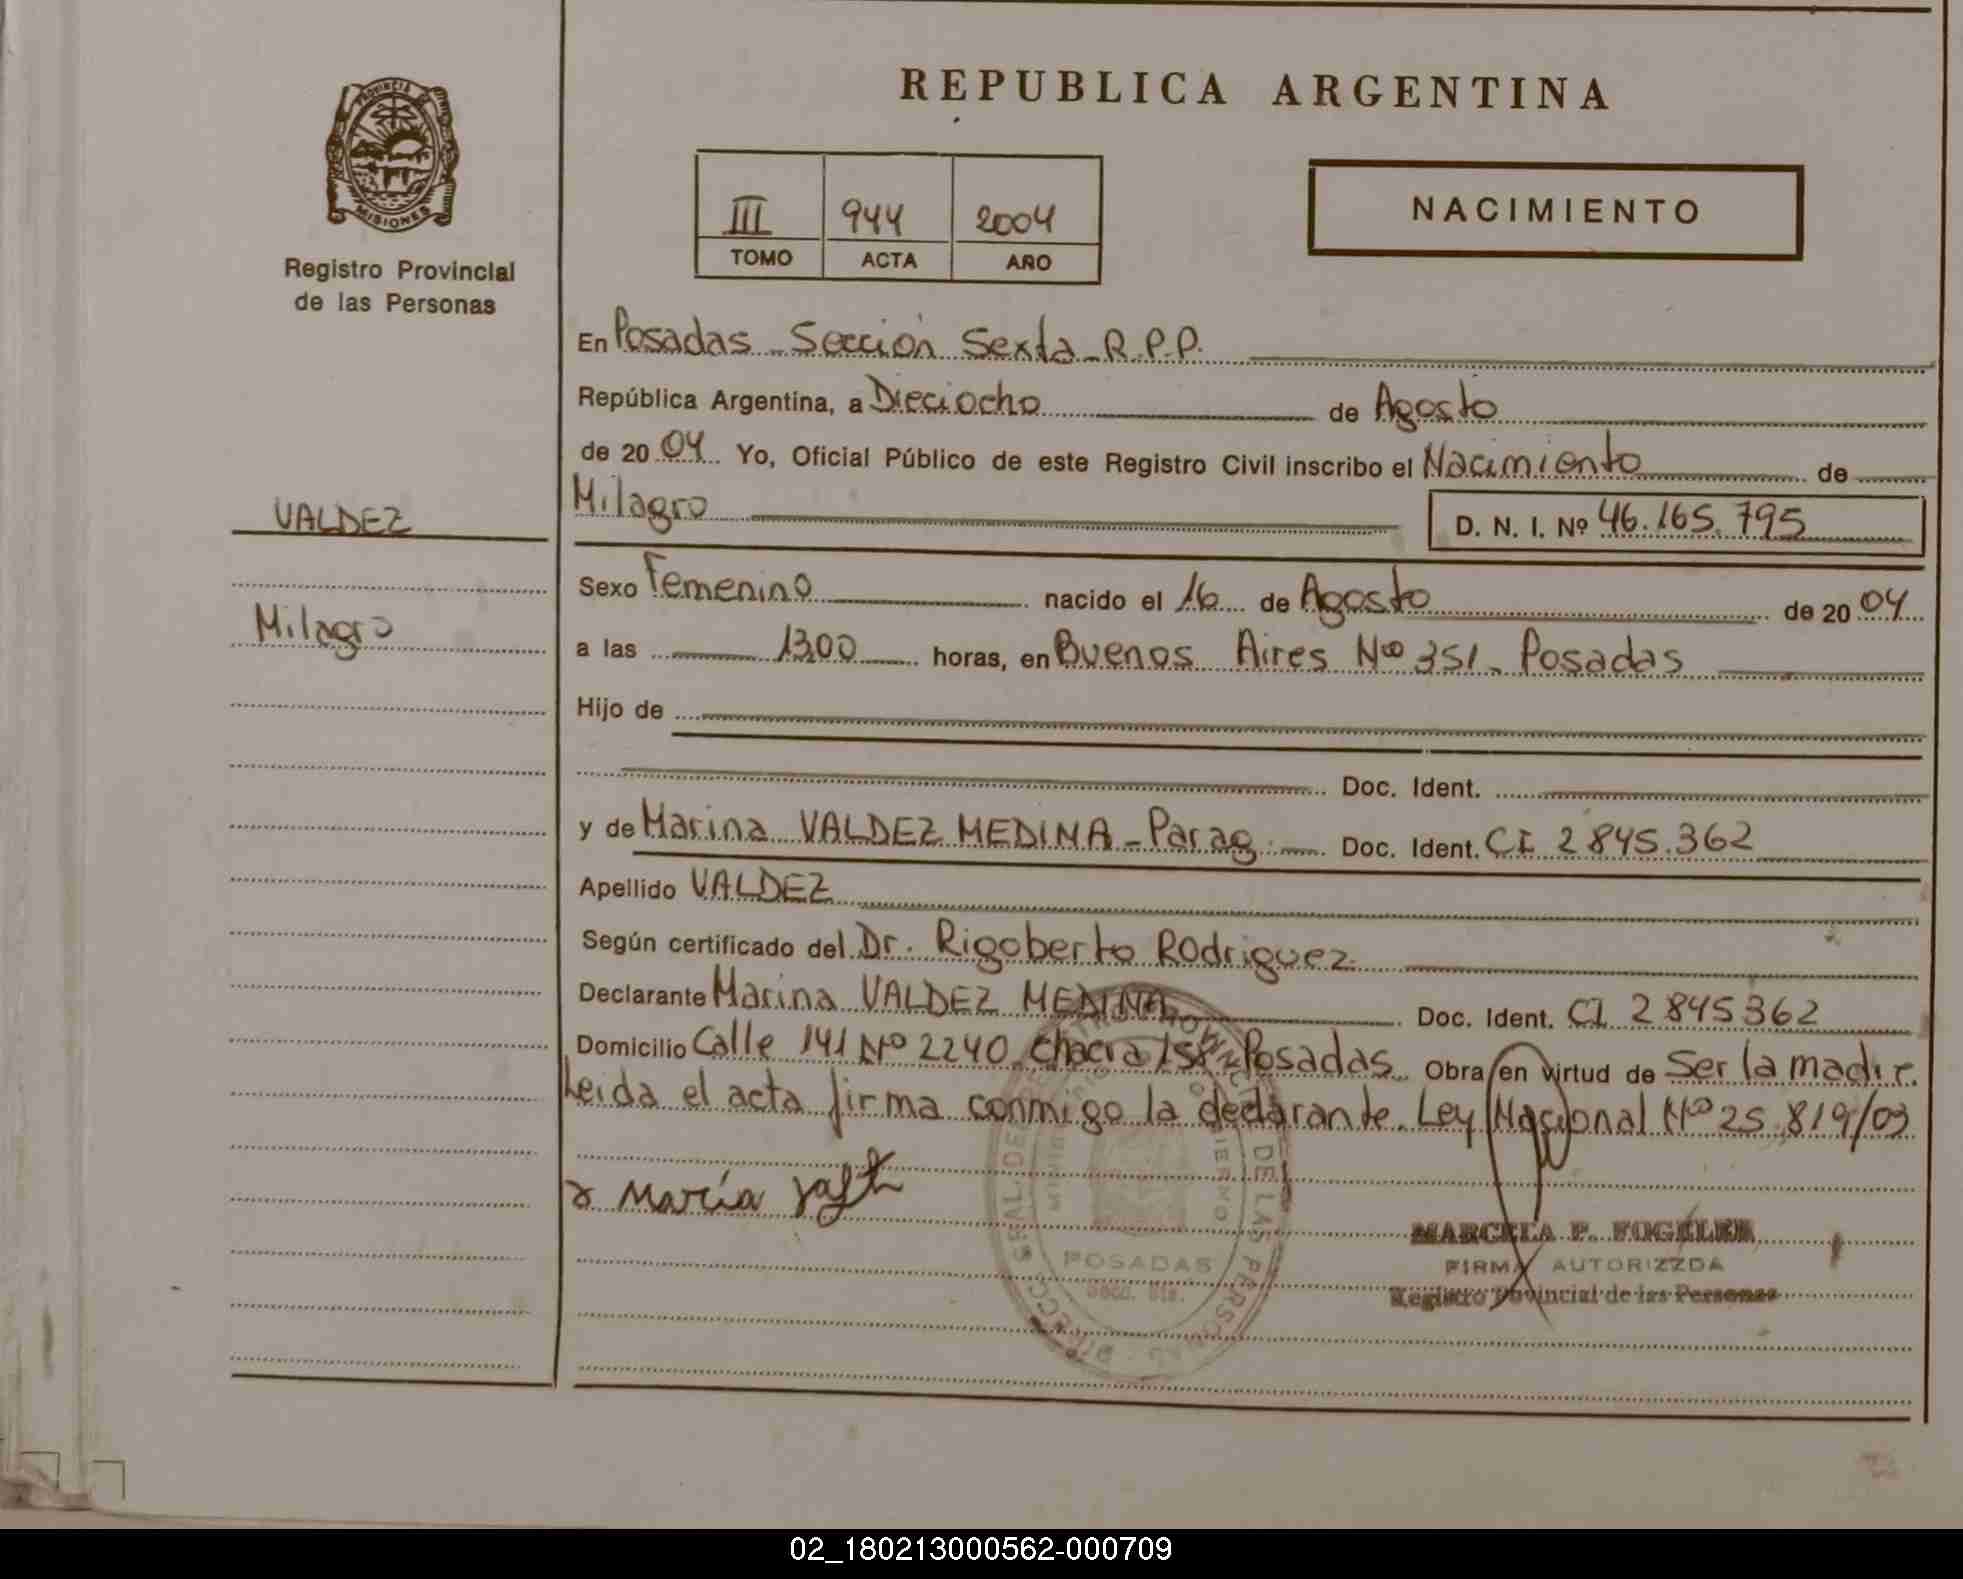 REPUBLICA ARGENTINA
PROVINCIA DE
MISIONES
Registro Provincial
de las Personas
III 944 2004
TOMO ACTA AÑO
NACIMIENTO
En Posadas - Sección Sexta - R.P.P.
República Argentina, a Dieciocho de Agosto
de 2004 Yo, Oficial Público de este Registro Civil inscribo el Nacimiento de
VALDEZ
Milagro
Milagro D. N. I. Nº 46.165.795
Sexo Femenino nacido el 16 de Agosto de 2004
a las 13,00 horas, en Buenos Aires Nº 351 - Posadas
Hijo de
Doc. Ident.
y de Marina VALDEZ MEDINA - Parag. Doc. Ident. CI 2845.362
Apellido VALDEZ
Según certificado del Dr. Rigoberto Rodriguez
Declarante Marina VALDEZ MEDINA Doc. Ident. CI 2845362
Domicilio Calle 141 Nº 2240 Chacra 158 Posadas Obra en virtud de Ser la madre.
Leida el acta firma conmigo la declarante. Ley Nacional Nº 25.819/03
María
POSADAS
MARCELA F. FOGELER
FIRMA AUTORIZZDA
Registro Provincial de las Personas
02_180213000562-000709